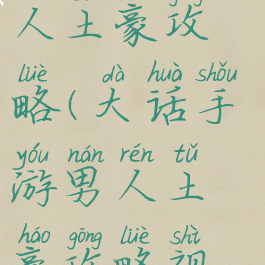 人土豪攻
lüè dà huà shǒu
略(大话手
yóu nán rén tǔ
游男人土
háo gōng lüè shì
豪攻略视